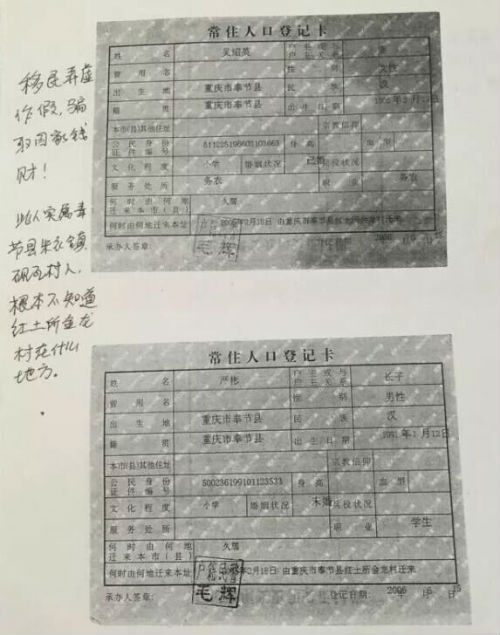 移民弄虚
作假，骗
取国家钱
财！
此人实属奉
节县朱衣镇
砚瓦村人，
根本不知道
红土所金龙
村在什么
地方。
常住人口登记卡
姓名 吴绍英 户主或与户主关系 妻
曾用名 性别 女性
出生地 重庆市奉节县 民族 汉
籍贯 重庆市奉节县 出生日期
本市(县)其他住址 宗教信仰
公民身份证件编号 身高 血型
文化程度 小学 婚姻状况 已婚 兵役状况
服务处所 务农 职业 务农
何时由何地迁来本市(县) 久居
何时由何地迁来本址 2006年2月18日 由重庆市奉节县红土所金龙村迁来
承办人签章： 毛辉
常住人口登记卡
姓名 严彬 户主或与户主关系 长子
曾用名 性别 男性
出生地 重庆市奉节县 民族 汉
籍贯 重庆市奉节县 出生日期 1991年1月12日
本市(县)其他住址 宗教信仰
公民身份证件编号 500236199101123533 身高 血型
文化程度 小学 婚姻状况 未婚 兵役状况
服务处所 职业 学生
何时由何地迁来本市(县) 久居
何时由何地迁来本址 年2月18日 由重庆市奉节县红土所金龙村迁来
承办人签章： 毛辉 登记日期： 2006年6月15